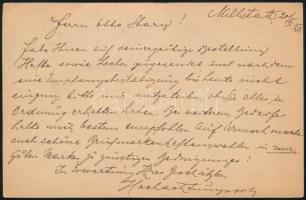 Millstatt, 20/
Herrn Otto Stary!
Habe Ihnen auf seinerzeitige Bestellung
Hefte sowie zugesendet und nachdem
eine Empfangsbestätigung bis heute nicht
einging, bitte mir mitzuteilen ob Sie alles in
Ordnung erhalten haben. Bei weiterem Bedarfe
halte mich bestens empfohlen. Auf Wunsch mache
auch schöne Briefmarkenheftauswahlen in nur
guten Marken zu günstigen Bedingungen!
In Erwartung Ihres Geschätzten